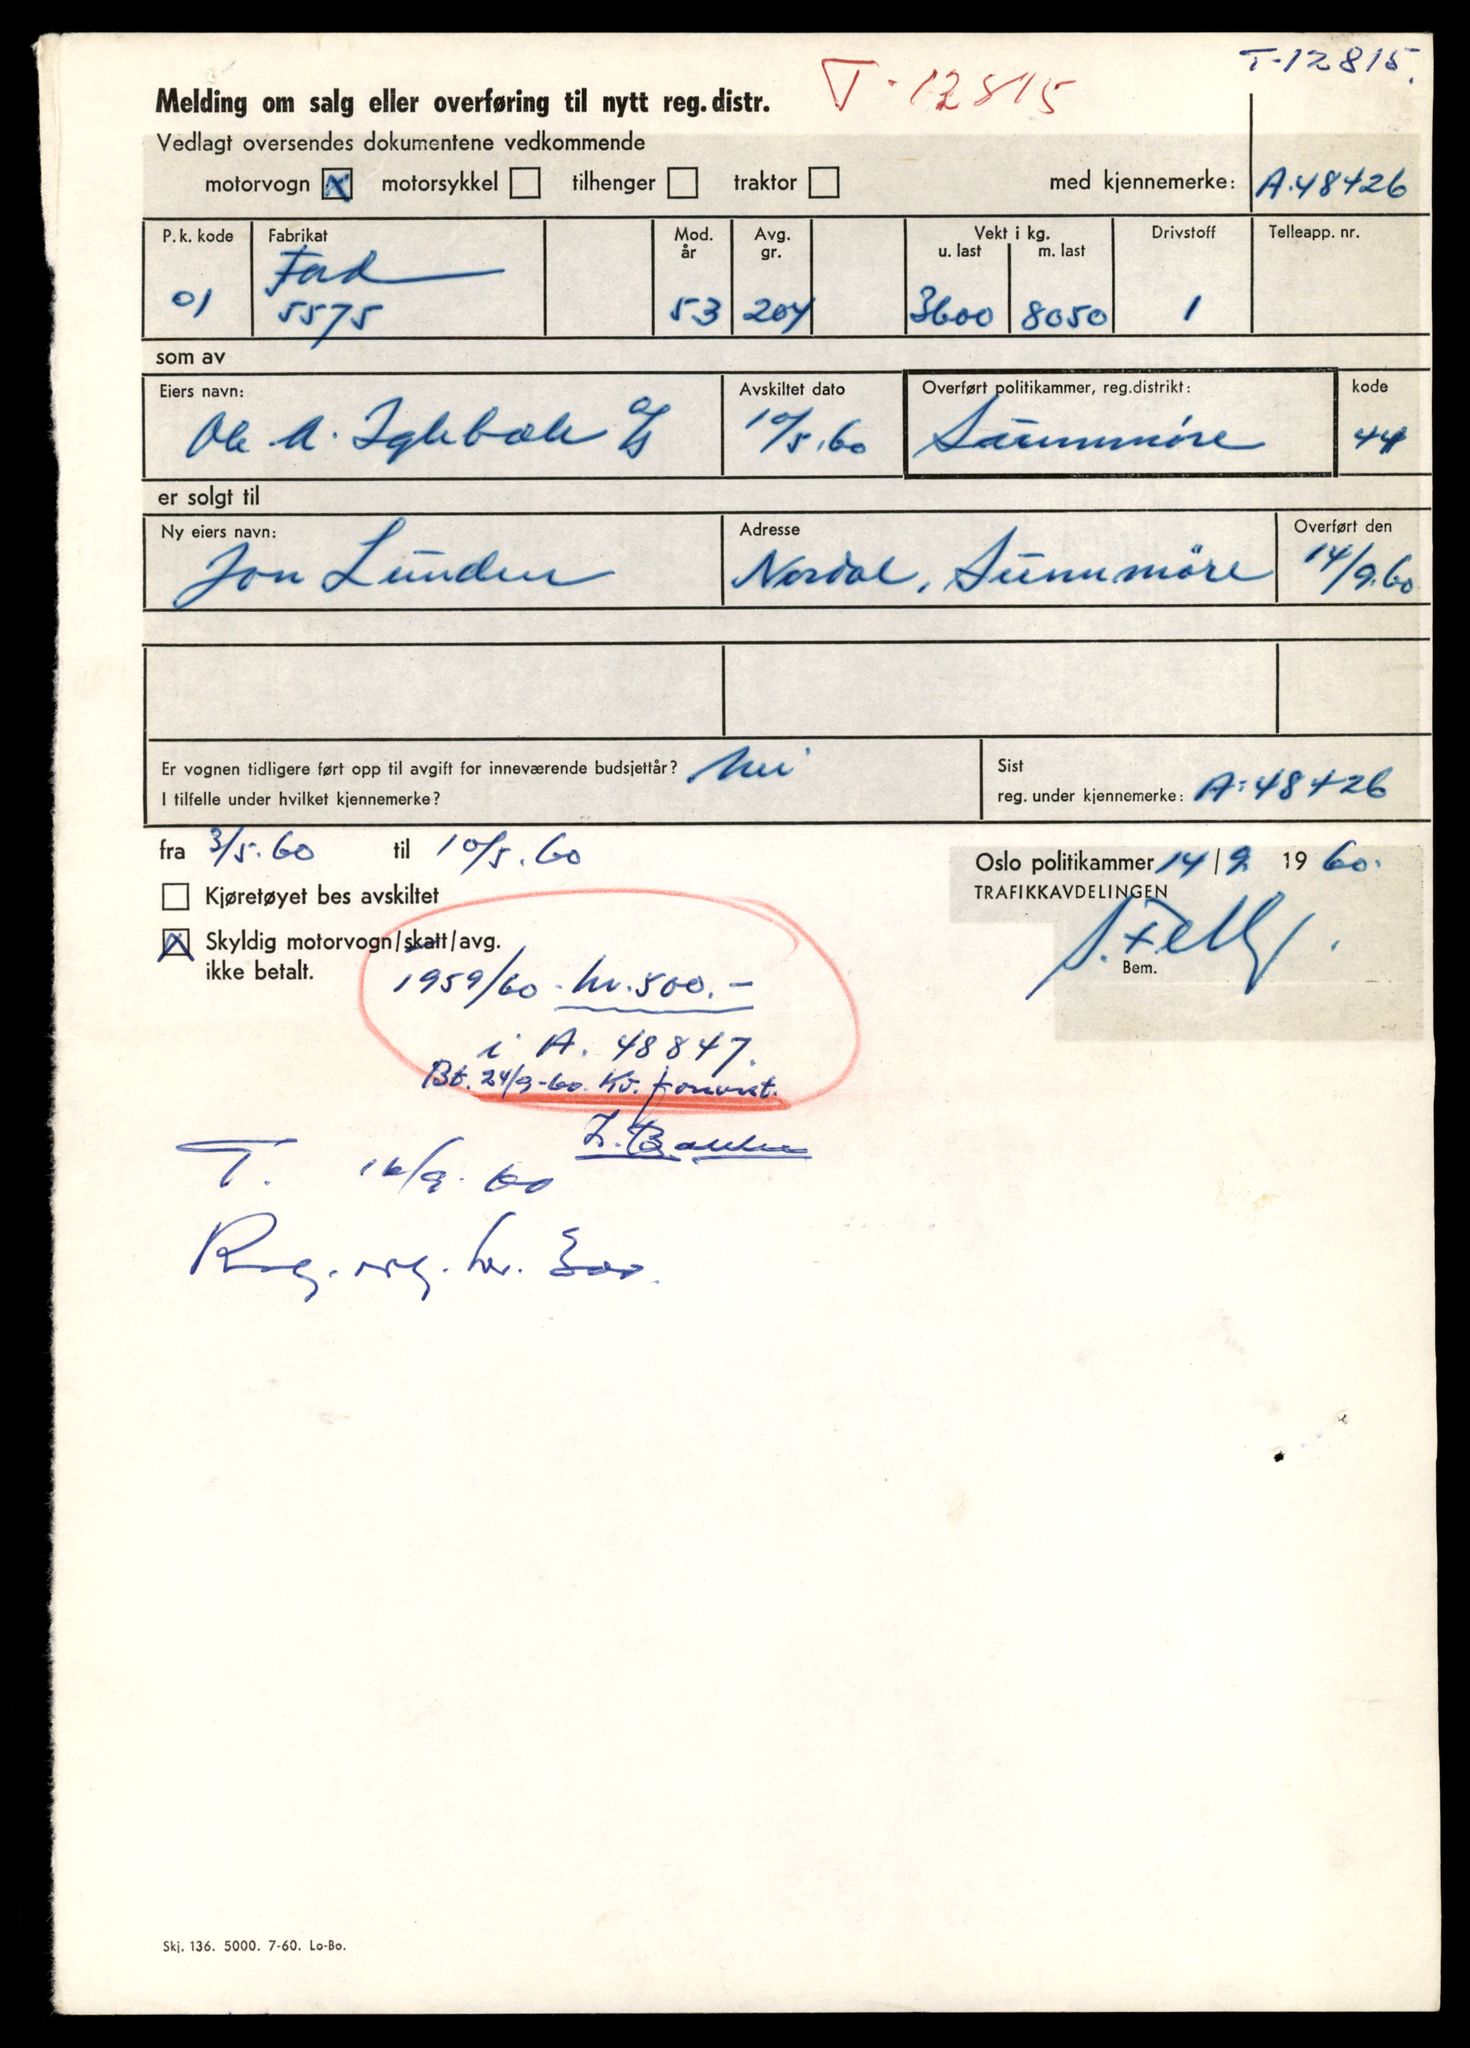 T-12815.
Melding om salg eller overføring til nytt reg.distr. T-12815
Vedlagt oversendes dokumentene vedkommende
motorvogn X motorsykkel tilhenger traktor med kjennemerke: A.48426
P.k. kode Fabrikat Mod. år Avg. gr. Vekt i kg. u. last m. last Drivstoff Telleapp. nr.
01 Ford 5575 53 204 3600 8050 1
som av
Eiers navn: Avskiltet dato Overført politikammer, reg.distrikt: kode
Ole A. Iglebæk A/S 10/5.60 Sunnmöre 44
er solgt til
Ny eiers navn: Adresse Overført den
Jon Linden Nordal, Sunnmöre 14/9.60
Er vognen tidligere ført opp til avgift for inneværende budsjettår? nei Sist
I tilfelle under hvilket kjennemerke? reg. under kjennemerke: A-48426
fra 3/5.60 til 10/5.60
Oslo politikammer 14/9 1960.
Kjøretøyet bes avskiltet
TRAFIKKAVDELINGEN
X Skyldig motorvogn/skatt/avg.
ikke betalt.
Bem.
1959/60 kr.500.-
i A. 48847.
Bt. 24/9-60. Kv. forevist.
T. 16/9.60
Reg. avg. kr. 300.
Skj. 136. 5000. 7-60. Lo-Bo.